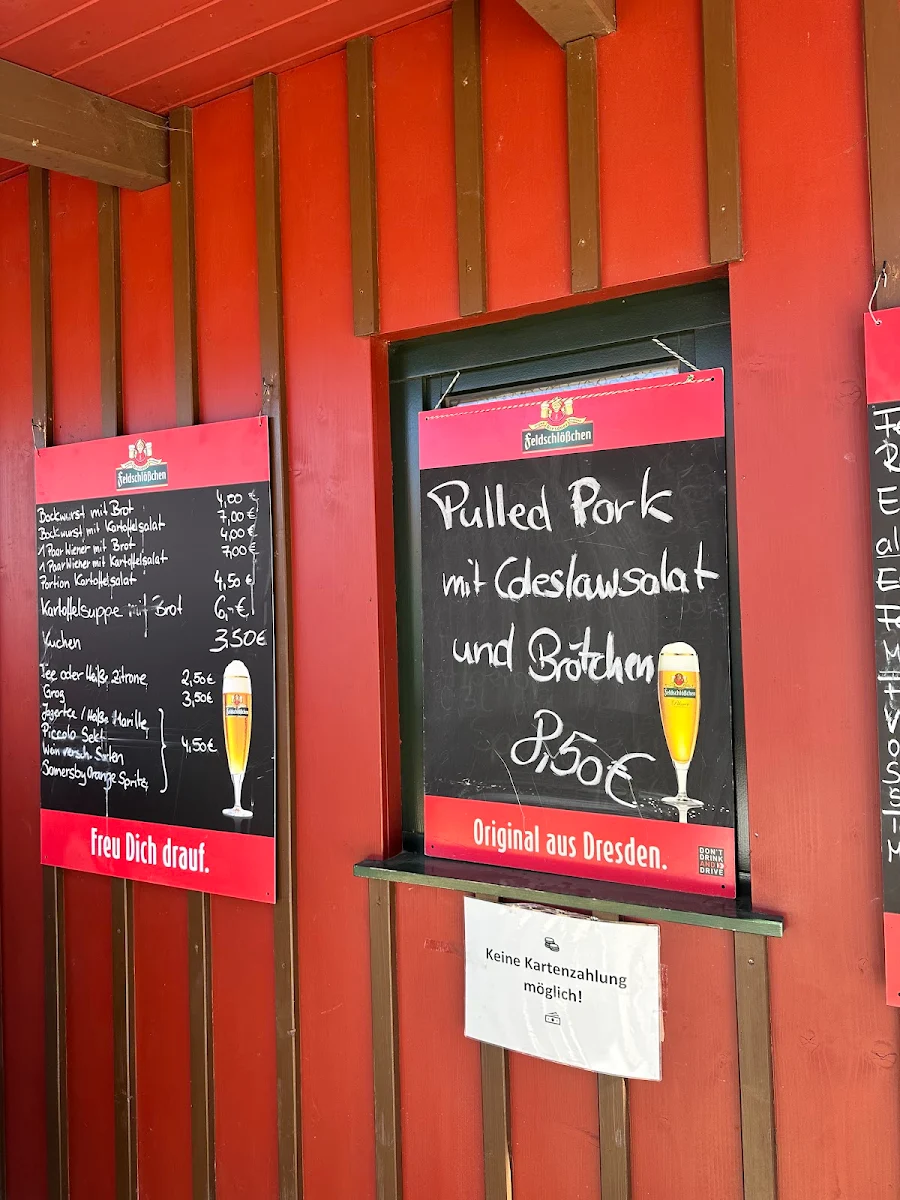 Feldschlößchen
Bockwurst mit Brot 4,00 €
Bockwurst mit Kartoffelsalat 7,00 €
1 Paar Wiener mit Brot 4,00 €
1 Paar Wiener mit Kartoffelsalat 7,00 €
Portion Kartoffelsalat 4,50 €
Kartoffelsuppe mit Brot 6,-€
Kuchen 3,50€
Tee oder Heiße Zitrone 2,50€
Grog 3,50€
Jagertee / Heiße Marille
Piccolo Sekt
Wein versch. Sorten 4,50€
Somersby Orange Spritz
Feldschlößchen
Freu Dich drauf.
Feldschlößchen
Pulled Pork
mit Coleslawsalat
und Brötchen
8,50€
Feldschlößchen
Original aus Dresden.
DON'T
DRINK
AND
DRIVE
Keine Kartenzahlung
möglich!